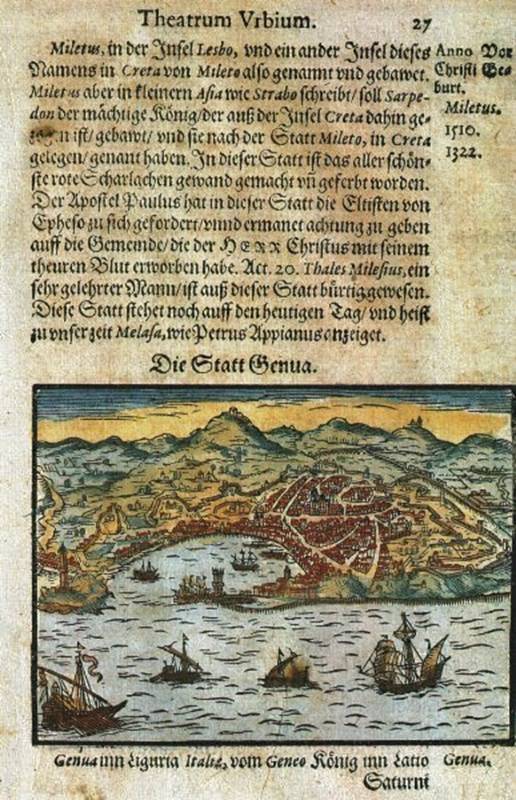 Theatrum Vrbium. 27
Miletus, in der Insel Lesbo, vnd ein ander Insel dieses
Namens in Creta von Mileto also genannt vnd gebawet.
Miletus aber in kleinern Asia wie Strabo schreibt/ soll Sarpe-
don der mächtige König/ der auß der Insel Creta dahin ge-
ist/ gebawt/ vnd sie nach der Statt Mileto, in Creta
gelegen/ genant haben. In dieser Statt ist das aller schön-
ste rote Scharlachen gewand gemacht vñ geferbt worden.
Der Apostel Paulus hat in dieser Statt die Eltisten von
Epheso zu sich gefordert/ vnnd ermanet achtung zu geben
auff die Gemeinde/ die der HERR Christus mit seinem
theuren Blut erworben habe. Act. 20. Thales Milesius, ein
sehr gelehrter Mann/ ist auß dieser Statt bürtig gewesen.
Diese Statt stehet noch auff den heutigen Tag/ vnd heist
zu vnser zeit Melasa, wie Petrus Appianus anzeiget.
Anno Vor
Christi Ge-
burt.
Miletus.
1510.
1322.
Die Statt Genua.
Genua inn Liguria Italiæ, vom Geneo König inn Latio
Saturni
Genua.